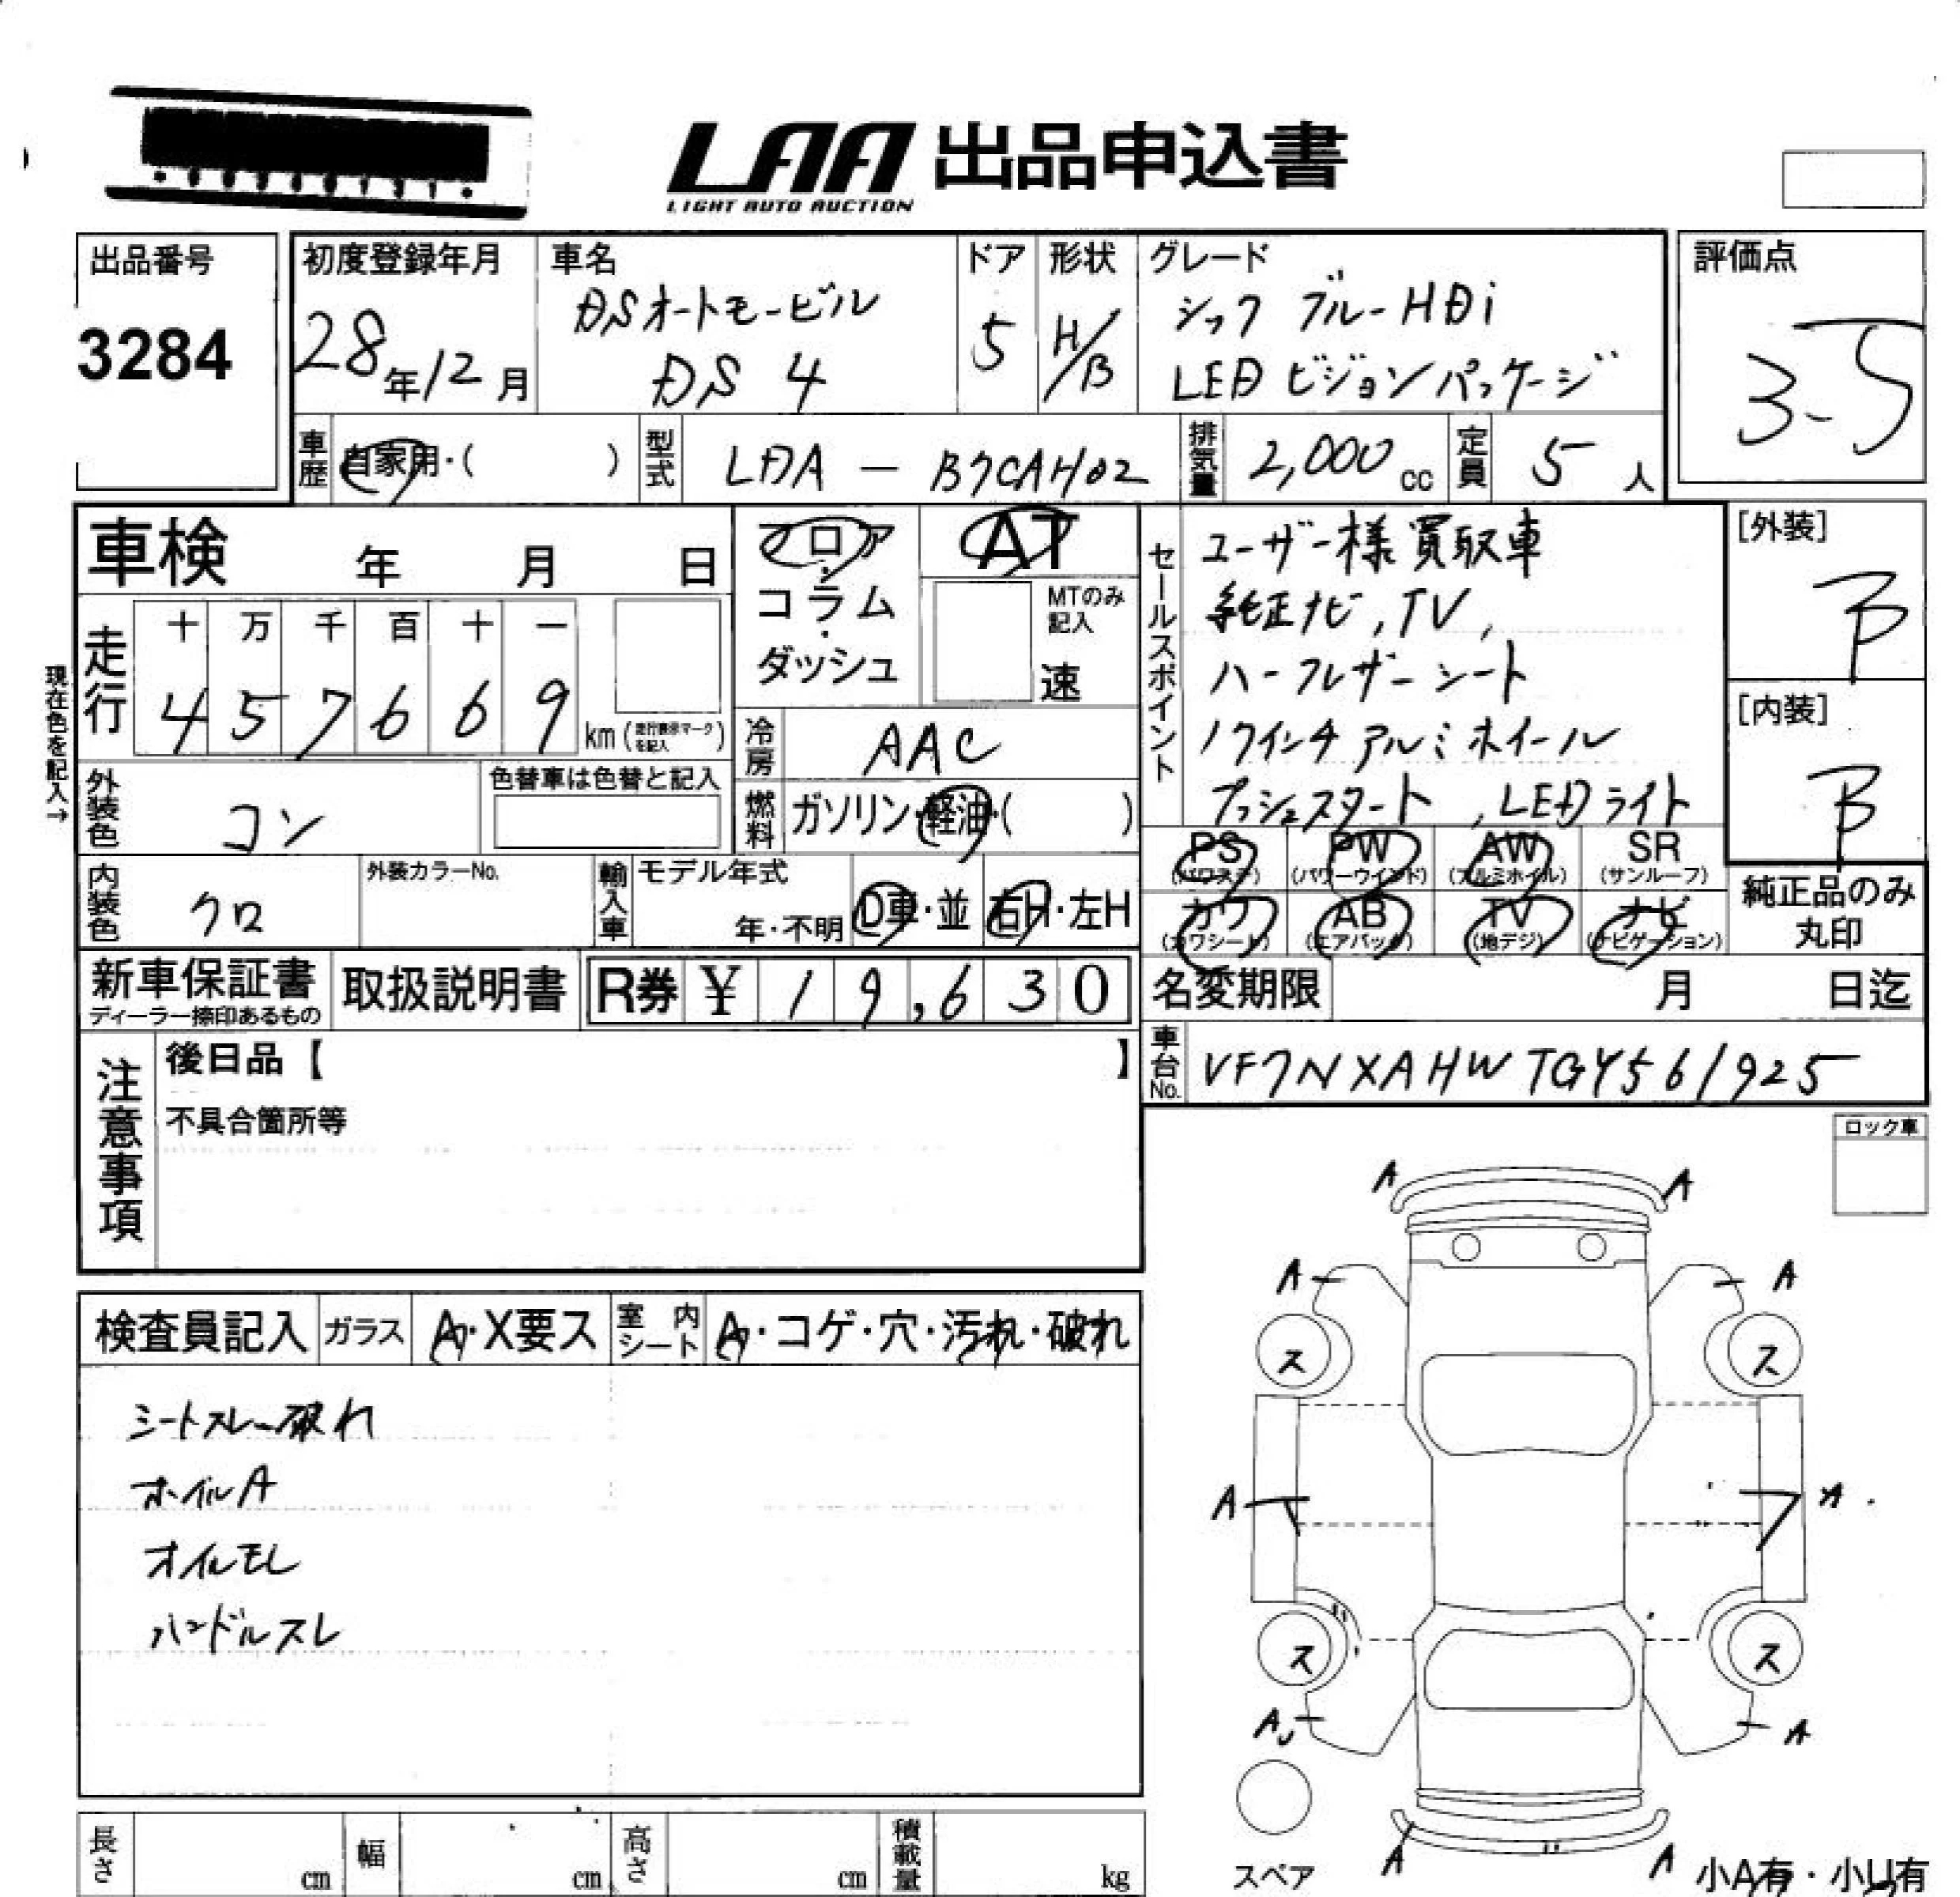 LAA 出品申込書
LIGHT AUTO AUCTION
出品番号
3284
初度登録年月
28年12月
車名
DSオートモービル
DS 4
ドア
5
形状
H/B
グレード
シック ブルーHDi
LED ビジョンパッケージ
評価点
3.5
車歴
自家用・( )
型式
LDA - B7CAH02
排気量
2,000 cc
定員
5 人
車検 年 月 日
走行
十 万 千 百 十 一
4 5 7 6 6 9
km(走行表示マークを記入)
現在色を記入→
フロア・コラム・ダッシュ
AT
MTのみ記入
速
冷房
AAC
燃料
ガソリン・軽油・( )
外装色
コン
色替車は色替と記入
内装色
クロ
外装カラーNo.
輸入車
モデル年式
年・不明
D車・並
右H・左H
セールスポイント
ユーザー様買取車
純正ナビ,TV,
ハーフレザーシート
17インチアルミホイール
プッシュスタート,LEDライト
[外装]
B
[内装]
B
PS (パワステ)
PW (パワーウインド)
AW (アルミホイル)
SR (サンルーフ)
カワ (カワシート)
AB (エアバッグ)
TV (地デジ)
ナビ (ナビゲーション)
純正品のみ
丸印
新車保証書
ディーラー捺印あるもの
取扱説明書
R券 ¥ 19,630
名変期限 月 日迄
車台No.
VF7NXAHWTGY561925
注意事項
後日品【 】
不具合箇所等
ロック車
検査員記入
ガラス
A・X要ス
室内シート
A・コゲ・穴・汚れ・破れ
シートスレ~破れ
ホイルA
オイルモレ
ハンドルスレ
A A
A A
ス ス
A A
ス ス
A A
スペア
A A
小A有・小U有
長さ cm
幅 cm
高さ cm
積載量 kg